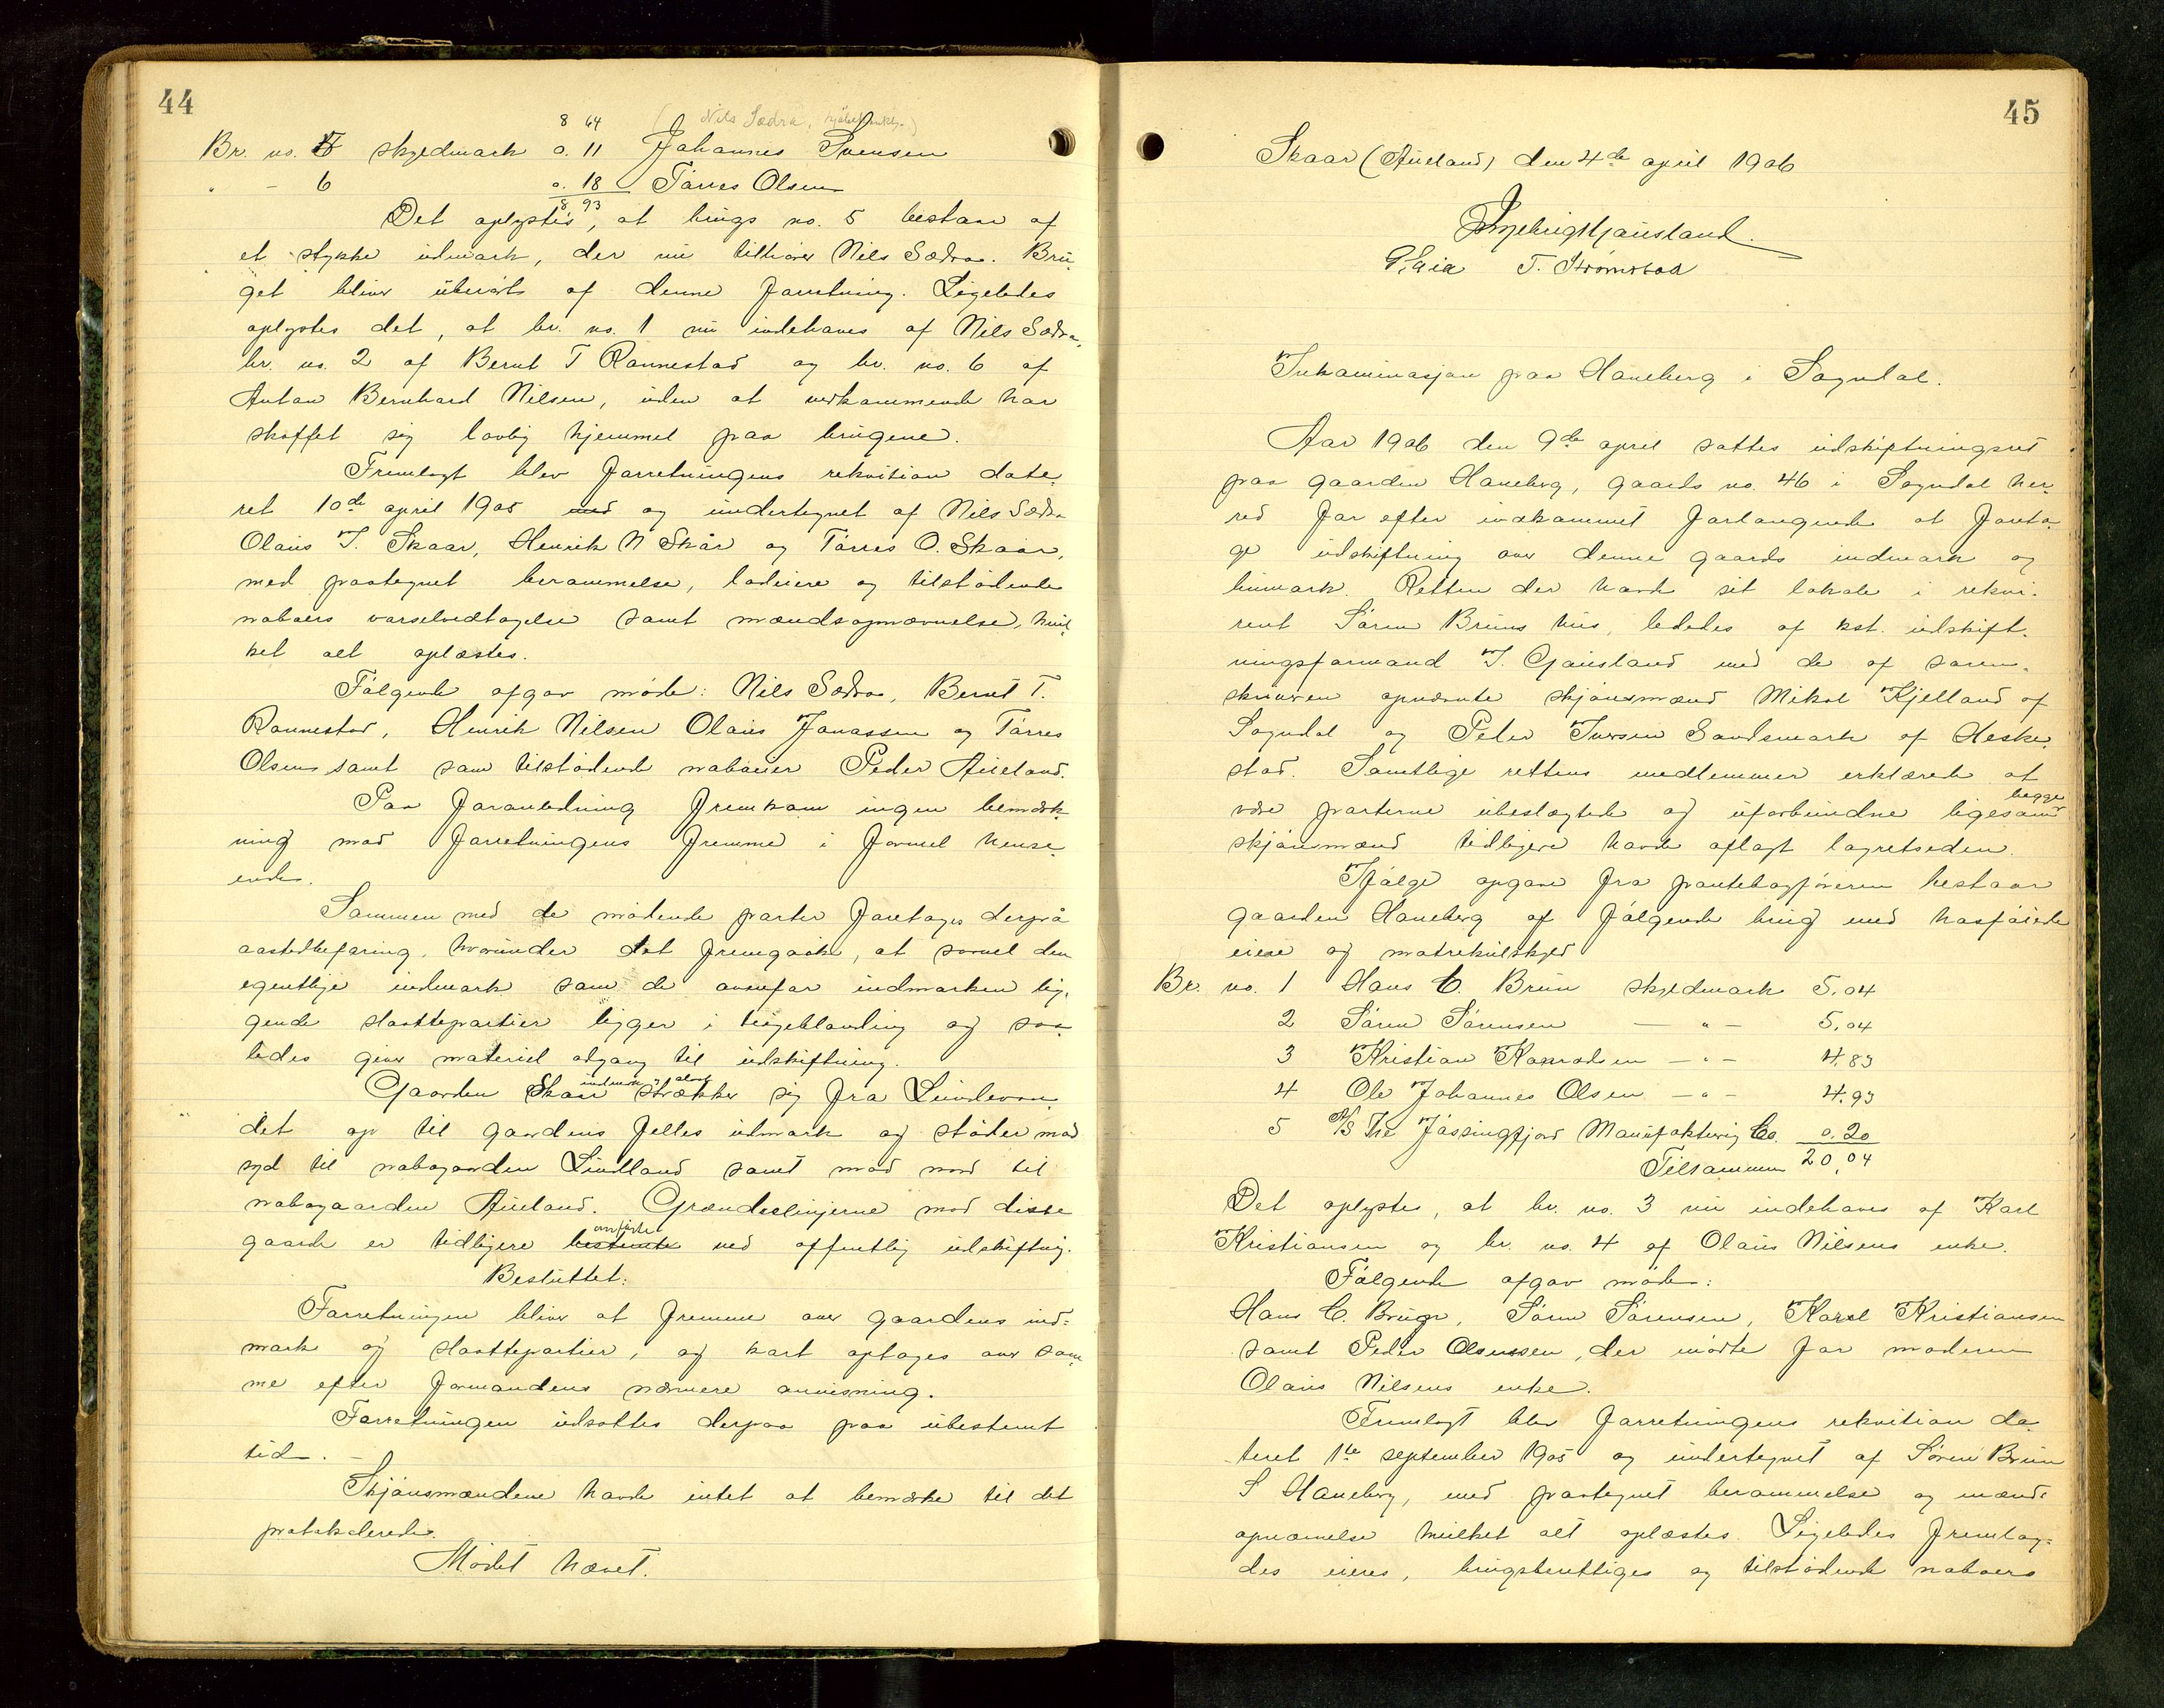 44
8 64 (Nils Sædra,
Br. no. 5 skyldmark 0.11 Johannes Svensen
" - 6 0.18 Törres Olsen
8 93
Det oplystes, at brugs no. 5 bestaar af
et stykke udmark, der nu tilhører Nils Sædra. Bru-
get bliver uberørt af denne forretning. Ligeledes
oplystes det, at br. no. 1 nu indehaves af Nils Sædra,
br. no. 2 af Bernt T Rannestad og br. no. 6 af
Anton Bernhard Nilsen, uden at vedkommende har
skaffet sig lovlig hjemmel paa brugene.
Fremlagt blev forretningens rekvisition date-
ret 10de april 1905 med og undertegnet af Nils Sædra
Olaus J. Skaar, Henrik N Skår og Tørres O. Skaar,
med paategnet berammelse, lodeiere og tilstødende
naboers varselvedtagelse samt mændsopnævnelse, hvil-
ket alt oplæstes.
Følgende afgav møde: Nils Sædra, Bernt T.
Rannestad, Henrik Nilsen Olaus Jonassen og Tørres
Olsen samt som tilstødende naboeier Peder Aueland.
Paa foranledning fremkom ingen bemærk-
ning mod forretningens fremme i formel hense-
ende.
Sammen med de mødende parter foretoges derpå
aastedbefaring, hvorunder det fremgaar, at saavel den
egentlige indmark som de ovenfor indmarken lig-
gende slaattepartier ligger i teigeblanding og saa-
ledes giver materiel adgang til udskiftning.
Gaarden Skaar indmark og slaat strækker sig fra Lundevan-
det op til gaardens fælles udmark og støder mod
syd til nabogaarden Lindland samt mod nord til
nabogaarden Aueland. Grændselinjerne mod disse
gaarde er tidligere bestemte omførte ved offentlig udskiftnig.
Besluttet:
Forretningen bliver at fremme over gaardens ind-
mark og slaattepartier, og kart optages over sam-
me efter formandens nærmere anvisning.
Forretningen udsattes derpaa paa ubestemt
tid. –
Skjønsmændene havde intet at bemærke til det
protokollerede.
Mødet hævet.
45
Skaar (Aueland) den 4de april 1906
Ingebrigt Gausland.
T. Strømstad
Inkaminasjon paa Haneberg i Sogndal.
Aar 1906 den 9de april sattes udskiftningsret
paa gaarden Haneberg, gaards no. 46 i Sogndal her-
red for efter indkommet forlangende at foreta-
ge udskiftning over denne gaards indmark og
heimark. Retten der havde sit lokale i rekvi-
rent Søren Bruns hus, lededes af kst. udskift-
ningsformand I. Gausland med de af soren-
skriveren opnævnte skjønsmænd Mikal Kjelland af
Sogndal og Peder Iversen Sandsmark af Heske-
stad. Samtlige rettens medlemmer erklærede at
være parterne ubeslægtede og uforbundne ligesom begge
skjønsmænd tidligere havde aflagt lagretseden.
Ifølge opgave fra pantebogføreren bestaar
gaarden Haneberg af følgende brug med hosføiede
eiere og matrikulskyld
Br. no. 1 Hans C. Brun skyldmark 5,04
2 Søren Sørensen — " — 5,04
3 Kristian Konradsen — " — 4.83
4 Ole Johannes Olsen — " — 4.93
5 A/S The Jøssingfjord Manufakturig Co. 0.20
Tilsammen 20,04
Det oplystes, at br. no. 3 nu indehaves af Karl
Kristiansen og br. no. 4 af Olaus Nilsens enke.
Følgende afgav møde:
Hans C. Brun, Søren Sørensen, Karl Kristiansen
samt Peder Olaussen, der mødte for moderen
Olaus Nilsens enke.
Fremlagt blev forretningens rekvisition da-
teret 1te september 1905 og undertegnet af Søren Brun
S Haneberg, med paategnet berammelse og mænds-
opnævnelse hvilket alt oplæstes. Ligeledes fremlag-
des eieres, brugsberettiges og tilstødende naboers